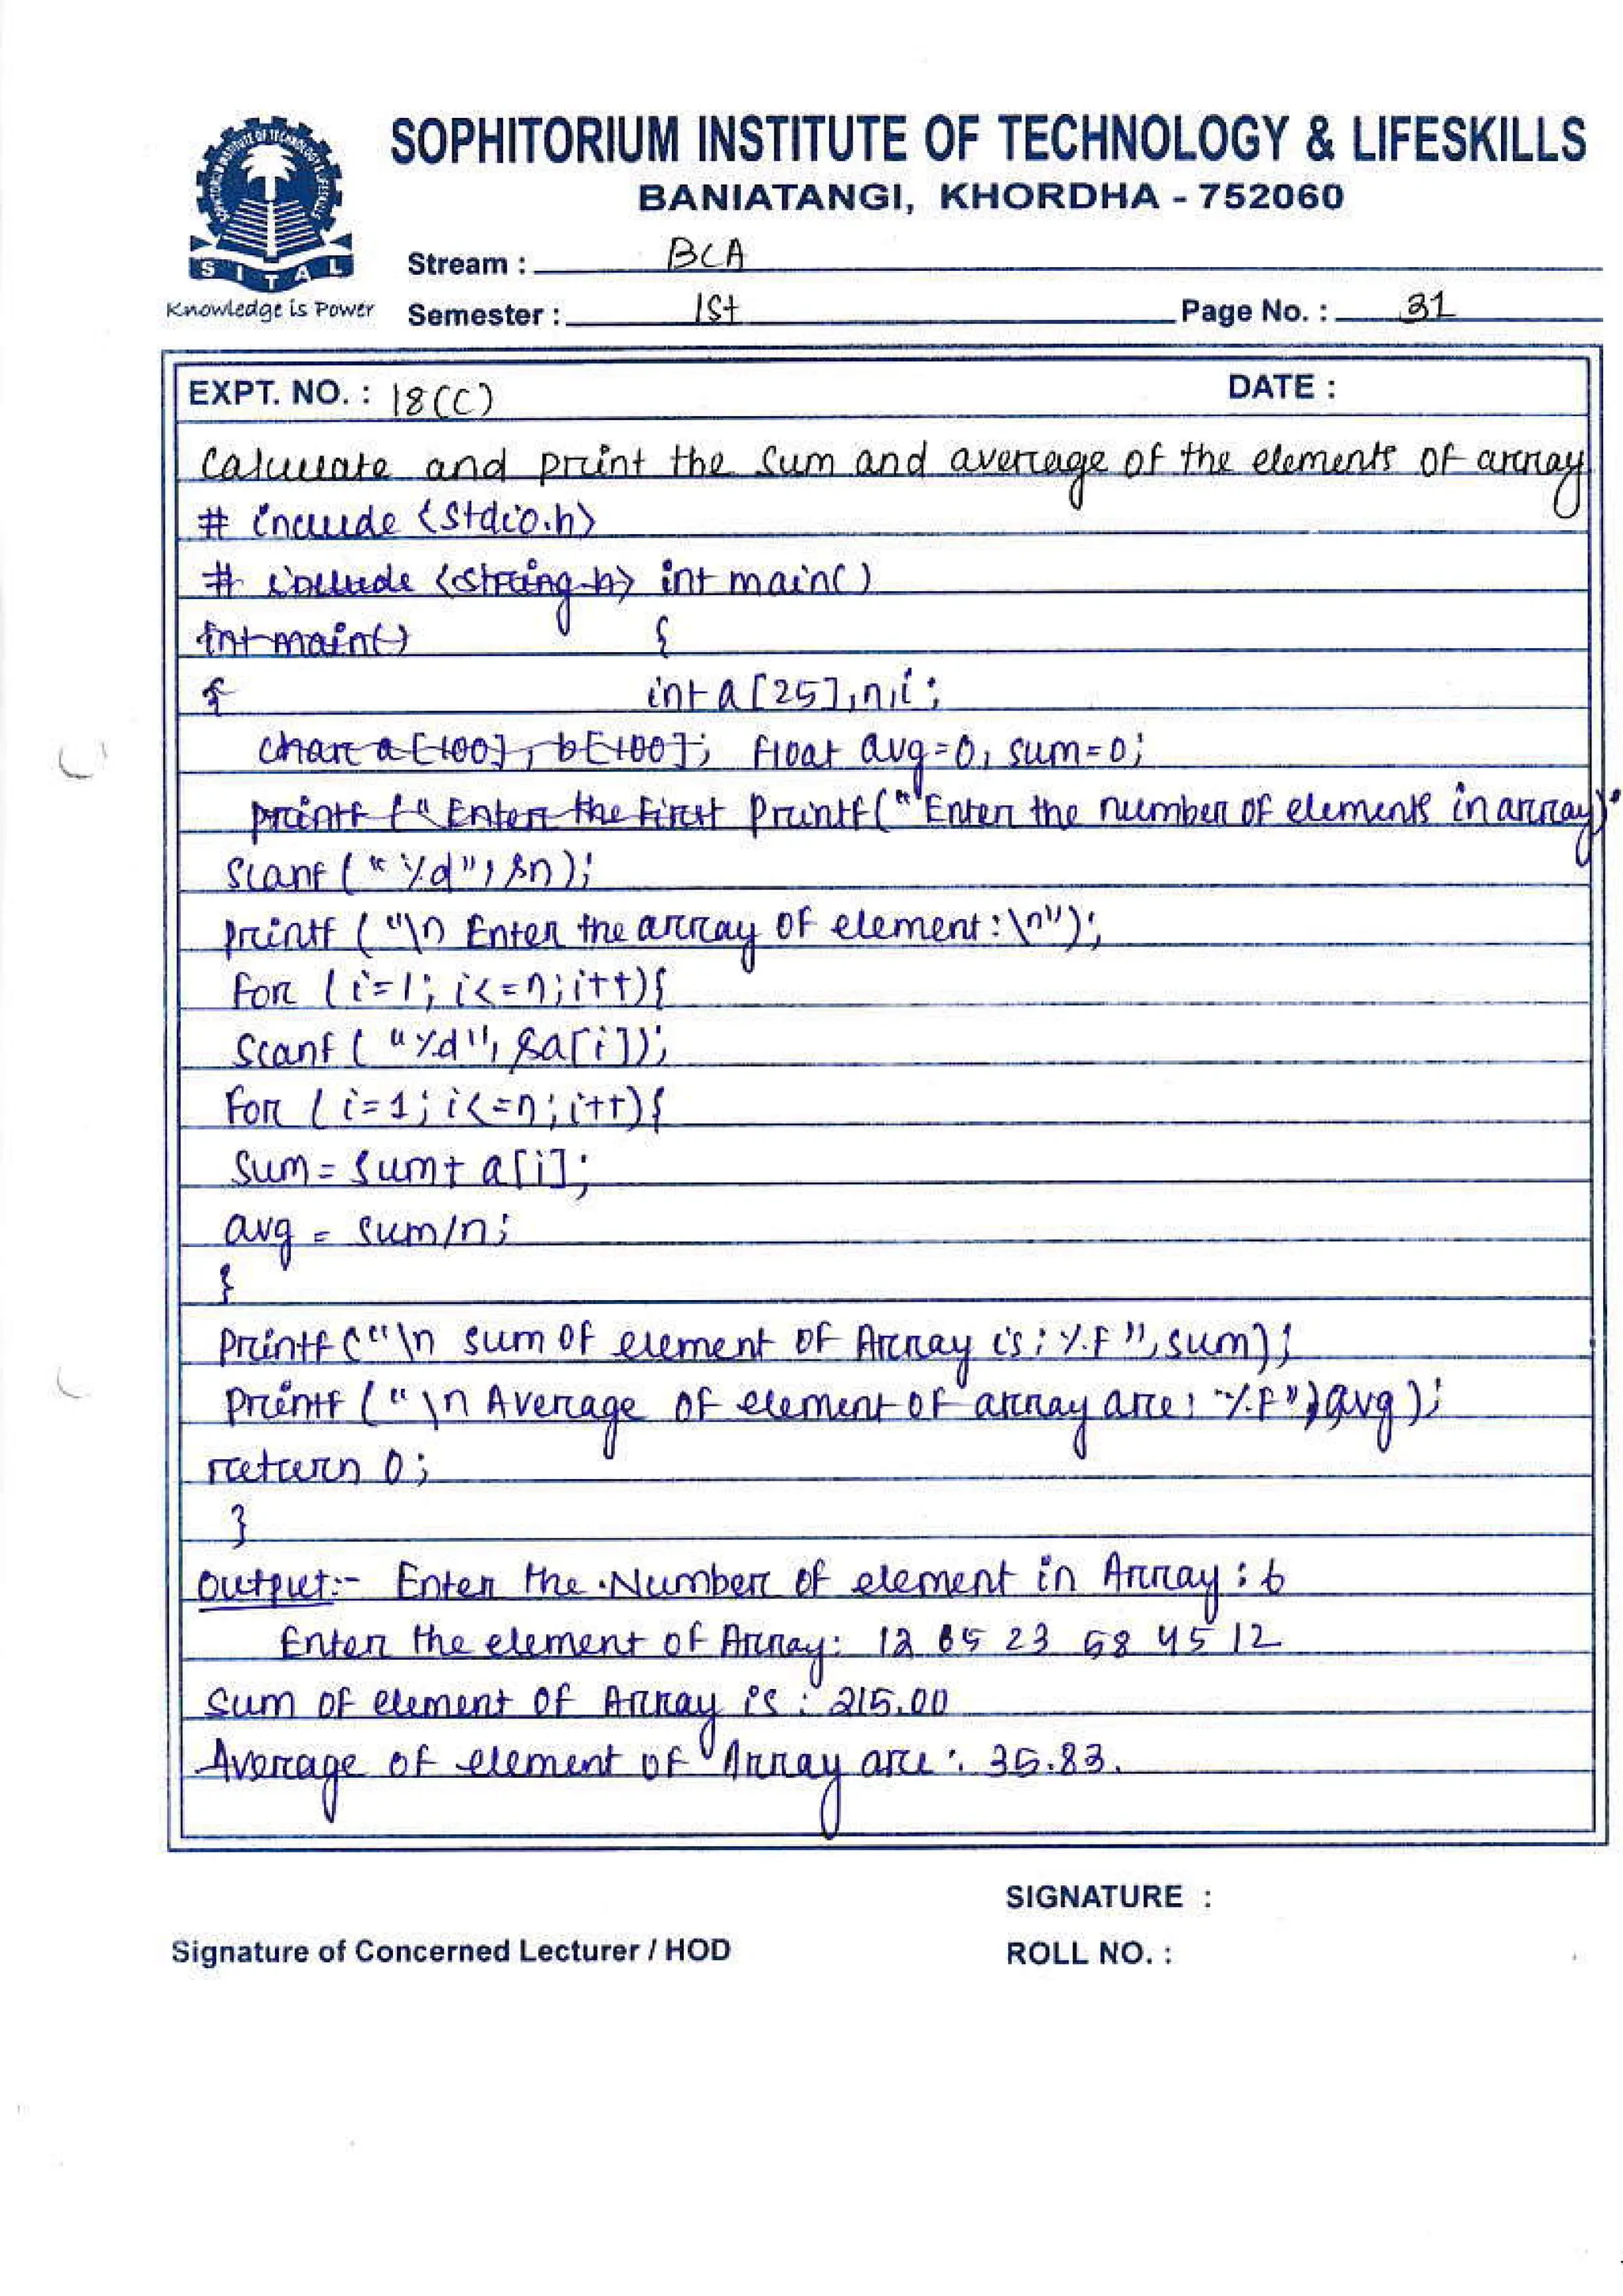 SOPHITORIUM INSTITUTE OF TECHNOLOGY & LIFESKILLS
BANIATANGI, KHORDHA - 752060
SITAL
Knowledge is Power
Stream : BCA
Semester : 1st Page No. : 31
EXPT. NO. : 18(C) DATE :
Calculate and print the sum and average of the elements of array
# include <stdio.h>
# include <string.h> int main()
int main() {
{ int a[25],n,i;
char a[100], b[100]; float avg=0, sum=0;
printf ("Enter the first Printf("Enter the number of elements in array)"
Scanf ("%d", &n);
printf ("\n Enter the array of element:\n");
for (i=1; i<=n; i++){
Scanf ("%d", &a[i]);
For (i=1; i<=n; i++){
Sum = Sum + a[i];
avg = sum/n;
}
Printf ("\n sum of element of Array is: %.f", sum);
Printf ("\n Average of element of array are: %.f", avg);
return 0;
}
Output:- Enter the Number of element in Array : 6
Enter the element of Array: 12 65 23 58 45 12
Sum of element of Array is : 215.00
Average of element of Array are : 35.83.
SIGNATURE :
Signature of Concerned Lecturer / HOD ROLL NO. :